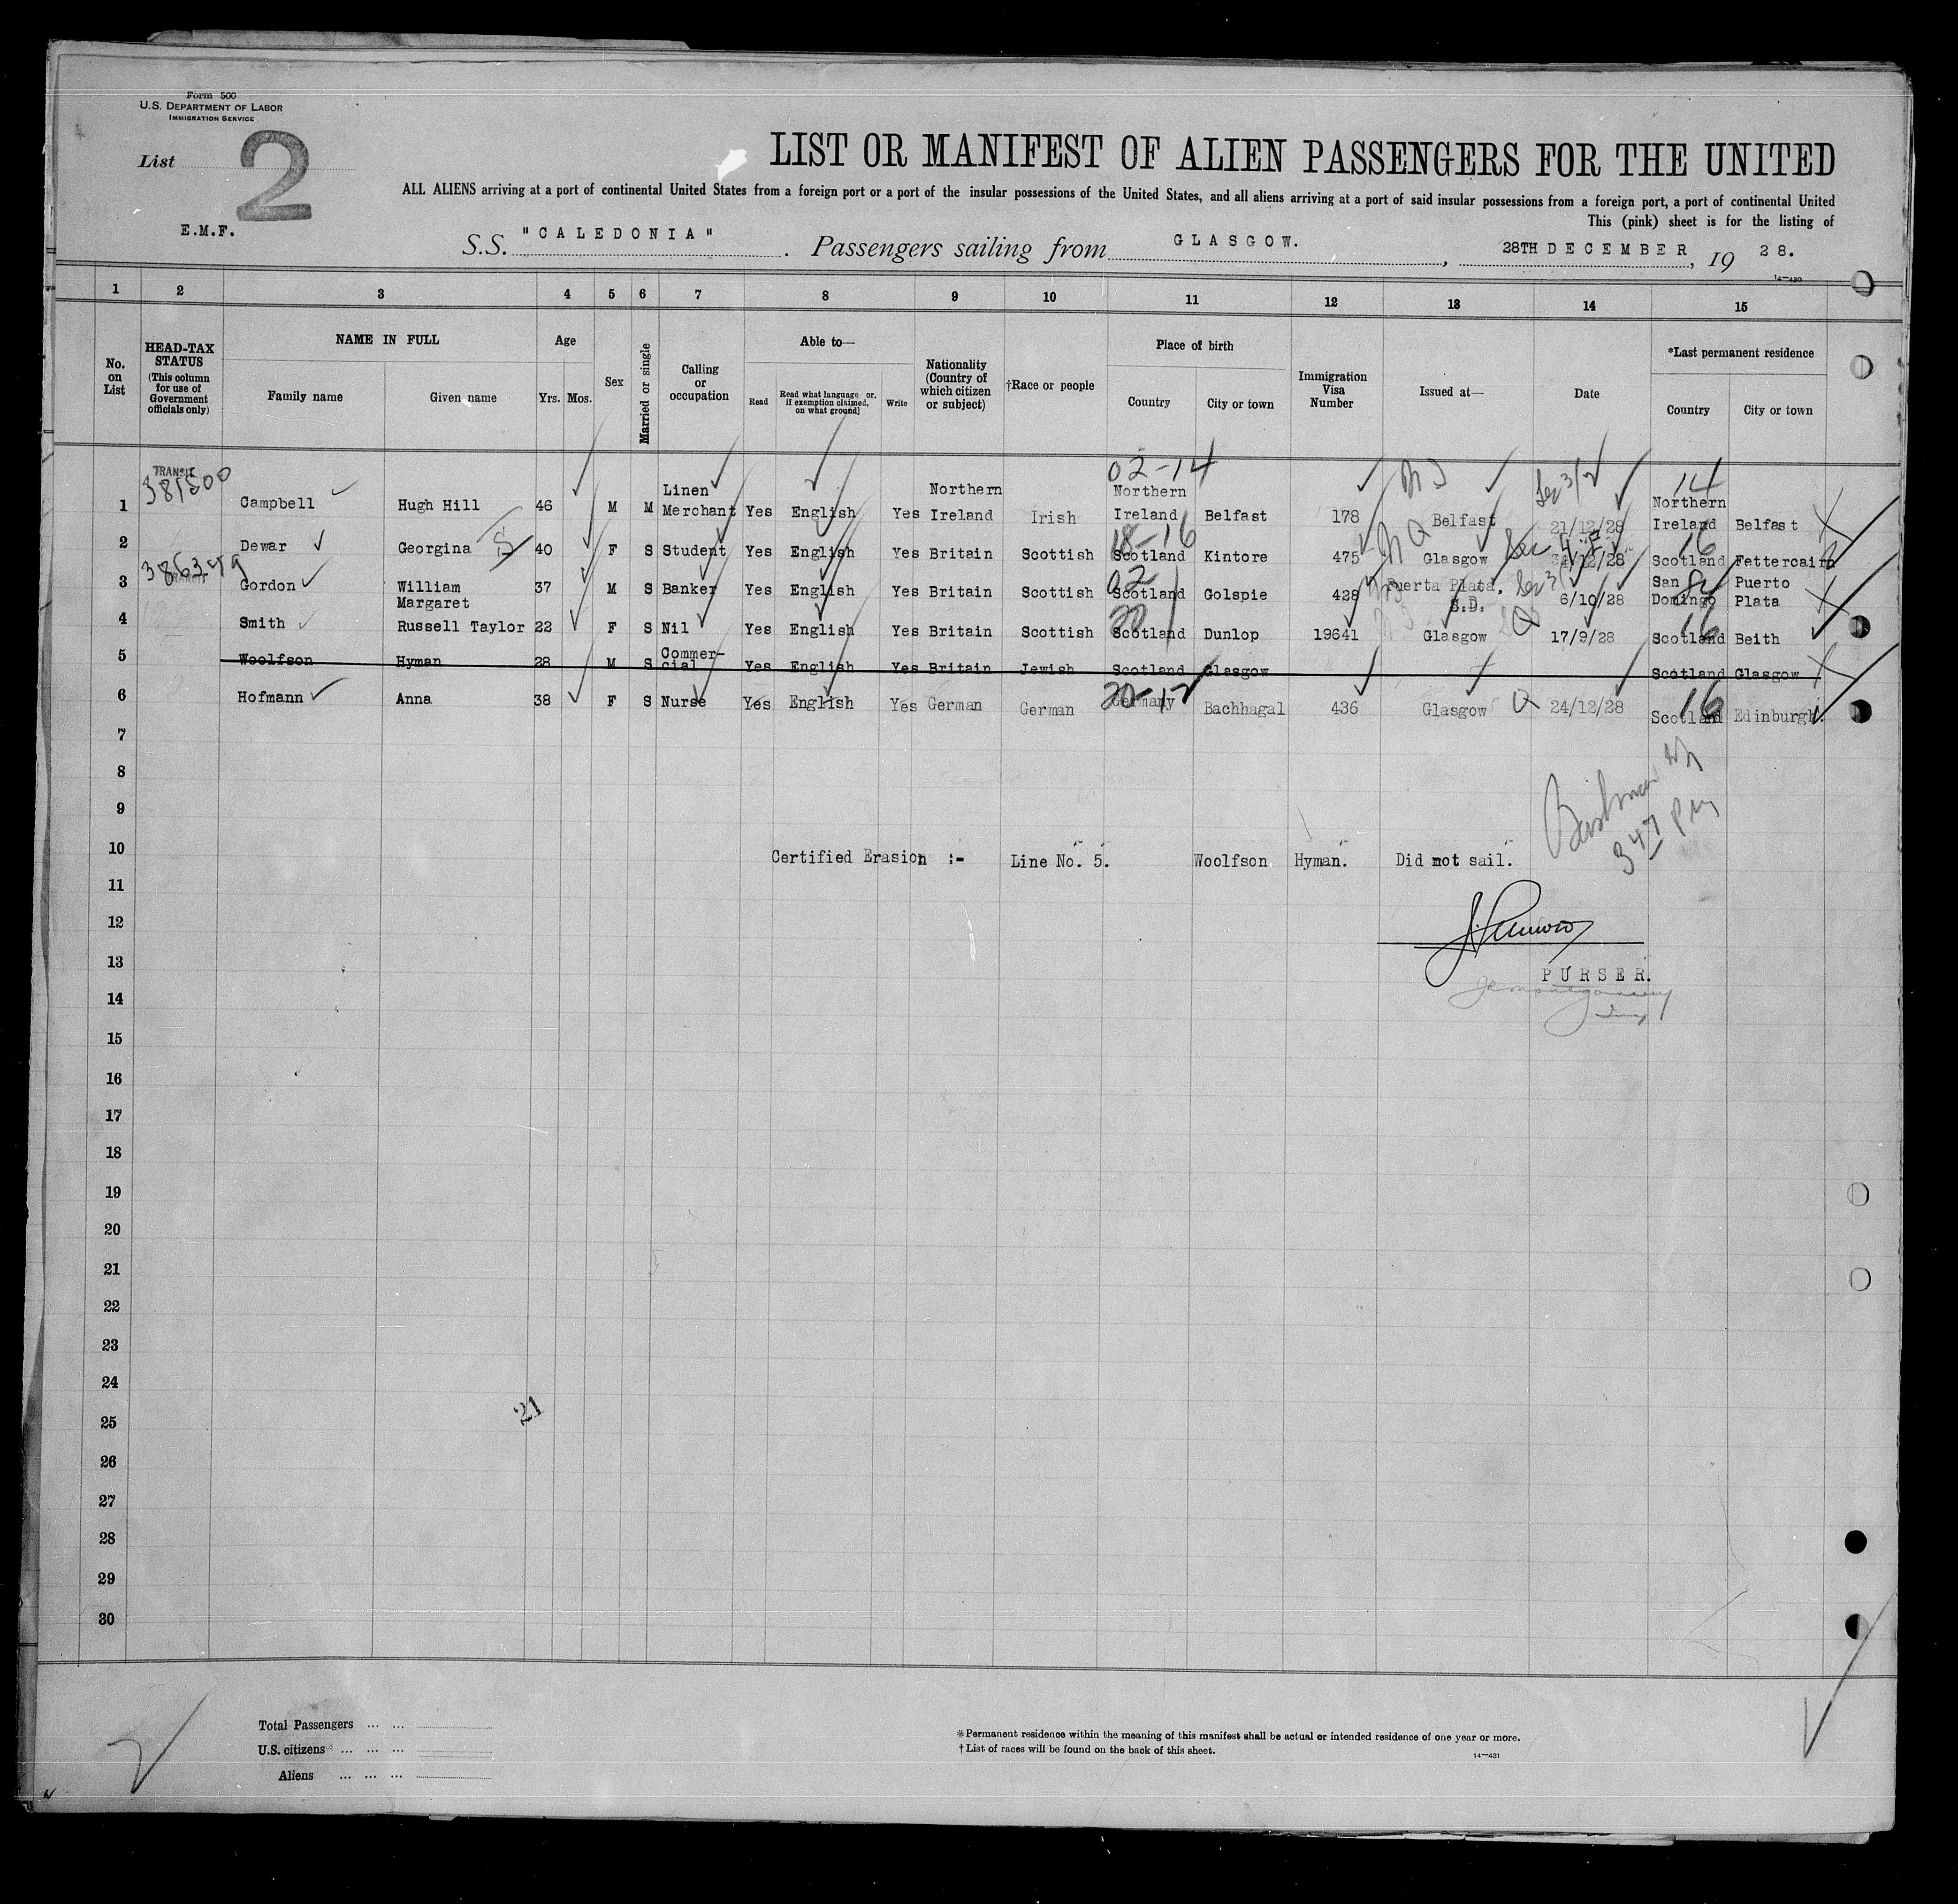 Form 500
U.S. DEPARTMENT OF LABOR
IMMIGRATION SERVICE
List 2
E.M.F.
LIST OR MANIFEST OF ALIEN PASSENGERS FOR THE UNITED
ALL ALIENS arriving at a port of continental United States from a foreign port or a port of the insular possessions of the United States, and all aliens arriving at a port of said insular possessions from a foreign port, a port of continental United
This (pink) sheet is for the listing of
S.S. "CALEDONIA". Passengers sailing from GLASGOW., 28TH DECEMBER, 19 28.
14—430
1 2 3 4 5 6 7 8 9 10 11 12 13 14 15
No. on List
HEAD-TAX STATUS (This column for use of Government officials only)
NAME IN FULL
Family name Given name
Age
Yrs. Mos.
Sex
Married or single
Calling or occupation
Able to—
Read Read what language or, if exemption claimed, on what ground] Write
Nationality (Country of which citizen or subject)
†Race or people
Place of birth
Country City or town
Immigration Visa Number
Issued at—
Date
*Last permanent residence
Country City or town
TRANSIT 381500 02-14 14
1 Campbell Hugh Hill 46 M M Linen Merchant Yes English Yes Northern Ireland Irish Northern Ireland Belfast 178 Belfast 21/12/28 Northern Ireland Belfast
18-16 16
2 Dewar Georgina 40 F S Student Yes English Yes Britain Scottish Scotland Kintore 475 Glasgow /12/28 Scotland Fettercairn
386379 02
3 Gordon William 37 M S Banker Yes English Yes Britain Scottish Scotland Golspie 428 Puerta Plata. S.D. 6/10/28 San Domingo Puerto Plata
20 16
4 Smith Margaret Russell Taylor 22 F S Nil Yes English Yes Britain Scottish Scotland Dunlop 19641 Glasgow 17/9/28 Scotland Beith
5 Woolfson Hyman 28 M S Commer-cial Yes English Yes Britain Jewish Scotland Glasgow Scotland Glasgow
20-12 16
6 Hofmann Anna 38 F S Nurse Yes English Yes German German Germany Bachhagal 436 Glasgow 24/12/28 Scotland Edinburgh.
7
8
9
10 Certified Erasion :- Line No. 5. Woolfson Hyman. Did not sail.
347 PM
11
12
13
PURSER.
14
15
16
17
18
19
20
21
22
23
24
21
25
26
27
28
29
30
Total Passengers ... ...
U.S. citizens ... ... ...
Aliens ... ... ...
*Permanent residence within the meaning of this manifest shall be actual or intended residence of one year or more.
†List of races will be found on the back of this sheet.
14—431